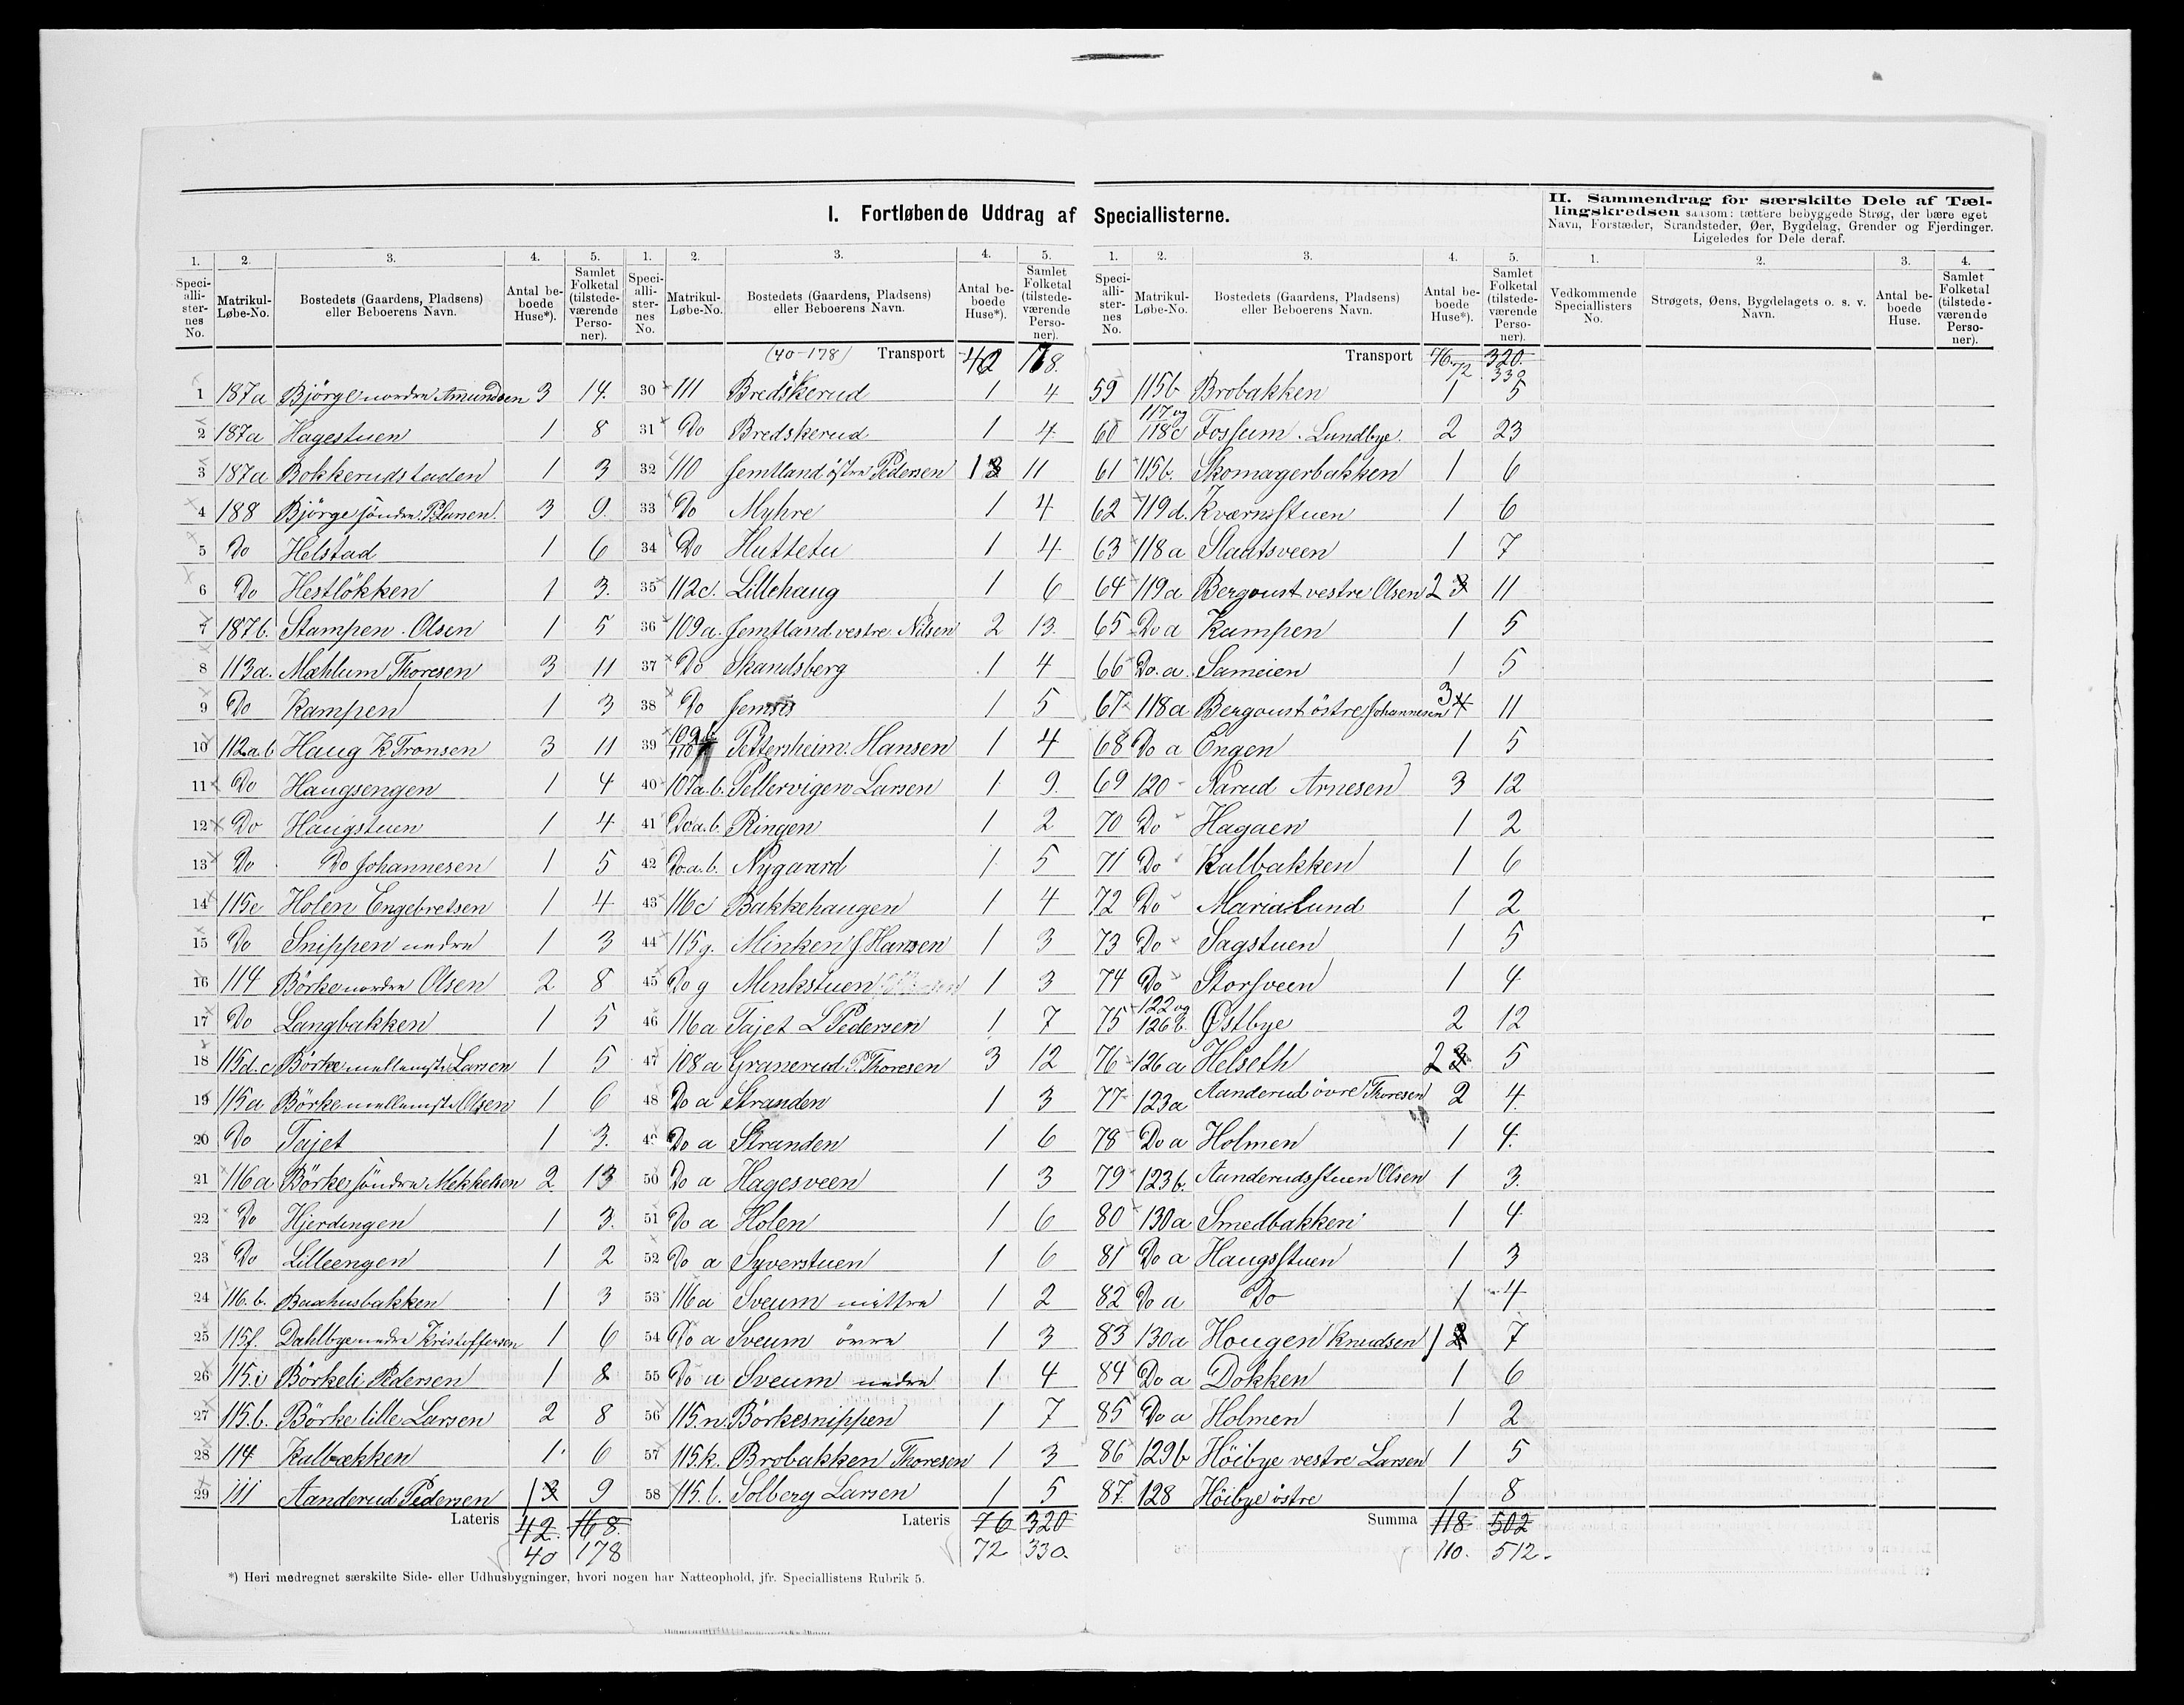 I. Fortløbende Uddrag af Speciallisterne.
II. Sammendrag for særskilte Dele af Tæl-
lingskredsen saasom: tættere bebyggede Strøg, der bære eget
Navn, Forstæder, Strandsteder, Øer, Bygdelag, Grender og Fjerdinger.
Ligeledes for Dele deraf.
1. 2. 3. 4. 5.
Speciallisternes No. Matrikul-Løbe-No. Bostedets (Gaardens, Pladsens) eller Beboerens Navn. Antal beboede Huse*). Samlet Folketal (tilstedeværende Personer).
1 187a Bjørge nordre Amundsen 3 14.
2 187a Hagestuen 1 8
3 187a Bokkerudstaden 1 3
4 188 Bjørge søndre P. Larsen. 3 9.
5 Do Helstad 1 6
6 Do Hestløkken 1 3.
7 187b. Stampen. Olsen 1 5
8 113a. Mæhlum Thoresen 3 11
9 Do Kampen 1 3
10 112a.b Haug K Tronsen 3 11
11 Do Haugsengen 1 4
12 Do Haugstuen 1 4
13 Do Do Johannesen 1 5
14 115e Holen Engebretsen 1 4
15 Do Snippen nedre 1 3
16 114 Börke nordre Olsen 2 8
17 Do Langbakken 1 5
18 115d.c Börke mellemste Larsen 1 5
19 115a Börke mellemste Olsen 1 6
20 Do Tajet 1 3.
21 116a Börke söndre Mekkelsen 2 13
22 Do Hjerdingen 1 3.
23 Do Lilleengen 1 2
24 116.b. Baahusbakken 1 3
25 115f. Dahlbye nedre Kristoffersen 1 6
26 115.i Börkeli Pedersen 1 8
27 115.b. Börke lille Larsen 2 8
28 114 Kalbækken 1 6
29 111 Aanderud Pedersen 1 3 9
Lateris 42. 168.
40 178
1. 2. 3. 4. 5.
Speciallisternes No. Matrikul-Løbe-No. Bostedets (Gaardens, Pladsens) eller Beboerens Navn. Antal beboede Huse*). Samlet Folketal (tilstedeværende Personer).
(40-178) Transport 42 168.
30 111 Bredskerud 1 4
31 Do Bredskerud 1 4
32 110 Jemtland östre Pedersen 1 3 11
33 Do Myhre 1 4
34 Do Huttetu 1 4
35 112c. Lillehaug 1 6
36 109a. Jemtland vestre Nilsen 2 13.
37 Do Skandsberg 1 4
38 Do 1 5
39 109b 110 Pettersheim. Hansen 1 4
40 107a.b. Pellervigen Larsen 1 9.
41 Do.a.b. Ringen 1 2
42 Do.a.b. Nygaard 1 5
43 116c Bakkehaugen 1 4
44 115g. Minken J. Hansen 1 3
45 Do g Minkstuen 1 3
46 116a Tajet L Pedersen 1 7
47 108a Granerud P. Thoresen 3 12
48 Do a Stranden 1 3
49 Do a Stranden 1 6
50 Do a Hagesveen 1 3
51 Do a Holen 1 6
52 Do a Syverstuen 1 6
53 116a Sveum mittre 1 2
54 Do a Sveum övre 1 3
55 Do a Sveum nedre 1 4
56 115.n. Börkesnippen 1 7
57 115.k. Brobakken Thoresen 1 3
58 115.l. Solberg Larsen 1 5
Lateris 76 320
72 330.
1. 2. 3. 4. 5.
Speciallisternes No. Matrikul-Løbe-No. Bostedets (Gaardens, Pladsens) eller Beboerens Navn. Antal beboede Huse*). Samlet Folketal (tilstedeværende Personer).
Transport 76. 320.
72 330
59 115b Brobakken 1 5
60 117 og 118c Fossum. Lundbye. 2 23
61 115b. Skomagerbakken 1 6
62 119d. Kværnstuen 1 6
63 118a Slaatsveen 1 7
64 119a Bergoust vestre Olsen 2 3 11
65 Do a Kampen 1 5
66 Do. a. Sameien 1 5
67 118a Bergoust östre Johannesen 3 4 11
68 Do a Engen 1 5
69 120 Narud Arnesen 3 12
70 Do Hagaen 1 2
71 Do Kalbakken 1 6
72 Do Marialund 1 2
73 Do Sagstuen 1 5
74 Do Storsveen 1 4
75 122 og 126b. Østbye 2 12
76 126a Helseth 2 3 5
77 123a Aanderud övre Thoresen 2 4.
78 Do a Holmen 1 4.
79 123b. Aanderudsstuen Olsen 1 3.
80 130a Smedbakken 1 4
81 Do a Haugsstuen 1 3
82 Do a Do 1 4
83 130a Hougen Knudsen 1 2 7
84 Do a Dokken 1 6
85 Do a Holmen 1 2
86 129b Höibye vestre Larsen 1 5
87. 128 Höibye östre 1 8
Summa 118 502
110. 512.
1. 2. 3. 4.
Vedkommende Speciallisters No. Strøgets, Øens, Bygdelagets o. s. v. Navn. Antal beboede Huse. Samlet Folketal (tilstedeværende Personer).
*) Heri medregnet særskilte Side- eller Udhusbygninger, hvori nogen har Natteophold, jfr. Speciallistens Rubrik 5.